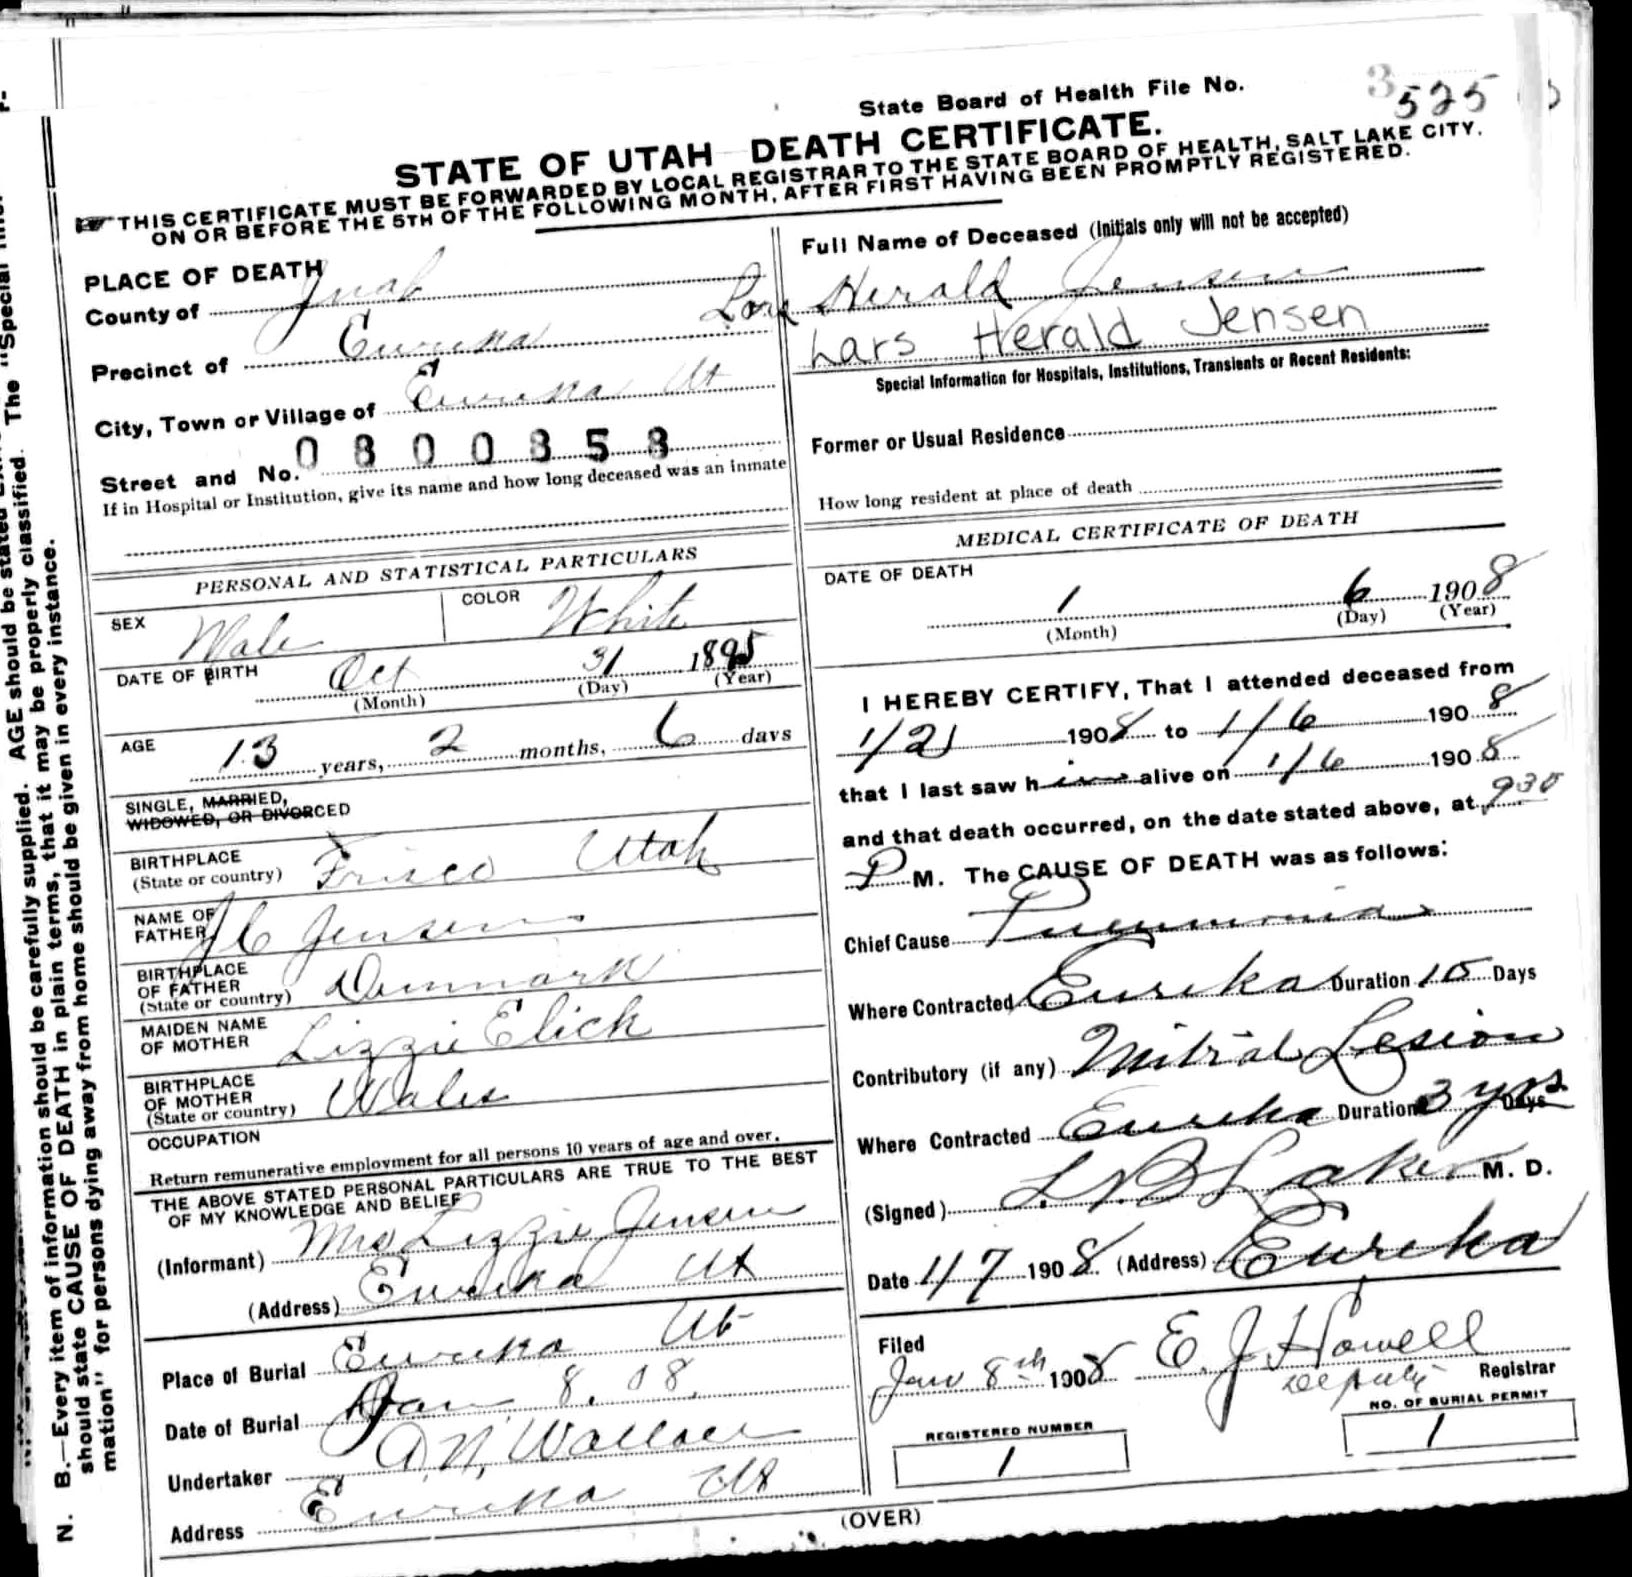 State Board of Health File No. 3 525
STATE OF UTAH—DEATH CERTIFICATE.
THIS CERTIFICATE MUST BE FORWARDED BY LOCAL REGISTRAR TO THE STATE BOARD OF HEALTH, SALT LAKE CITY,
ON OR BEFORE THE 5TH OF THE FOLLOWING MONTH, AFTER FIRST HAVING BEEN PROMPTLY REGISTERED.
PLACE OF DEATH
County of Juab
Precinct of Eureka
City, Town or Village of Eureka Ut
Street and No. 0800858
If in Hospital or Institution, give its name and how long deceased was an inmate
PERSONAL AND STATISTICAL PARTICULARS
SEX Male COLOR White
DATE OF BIRTH Oct 31 1895
(Month) (Day) (Year)
AGE 13 years, 2 months, 6 days
SINGLE, MARRIED,
WIDOWED, OR DIVORCED
BIRTHPLACE
(State or country) Frisco Utah
NAME OF
FATHER J C Jensen
BIRTHPLACE
OF FATHER
(State or country) Denmark
MAIDEN NAME
OF MOTHER Lizzie Elick
BIRTHPLACE
OF MOTHER
(State or country) Wales
OCCUPATION
Return remunerative employment for all persons 10 years of age and over.
THE ABOVE STATED PERSONAL PARTICULARS ARE TRUE TO THE BEST
OF MY KNOWLEDGE AND BELIEF
(Informant) Mrs Lizzie Jensen
(Address) Eureka Ut
Place of Burial Eureka Ut
Date of Burial Jan 8. 08.
Undertaker A.N. Wallace
Address Eureka Ut
Full Name of Deceased (Initials only will not be accepted)
Herald Jensen
Lars Herald Jensen
Special Information for Hospitals, Institutions, Transients or Recent Residents:
Former or Usual Residence
How long resident at place of death
MEDICAL CERTIFICATE OF DEATH
DATE OF DEATH
1 6 1908
(Month) (Day) (Year)
I HEREBY CERTIFY, That I attended deceased from
1/21 1908 to 1/6 1908
that I last saw him alive on 1/6 1908
and that death occurred, on the date stated above, at 930
P M. The CAUSE OF DEATH was as follows:
Chief Cause Pneumonia
Where Contracted Eureka Duration 15 Days
Contributory (if any) Mitral Lesion
Where Contracted Eureka Duration 3 yrs Days
(Signed) M. D.
Date 1/7 1908 (Address) Eureka
Filed
Jan 8th 1908 E. J. Howell
Deputy Registrar
REGISTERED NUMBER
1
NO. OF BURIAL PERMIT
1
(OVER)
N. B.—Every item of information should be carefully supplied. AGE should be stated
should state CAUSE OF DEATH in plain terms, that it may be properly classified. The "Special
mation" for persons dying away from home should be given in every instance.